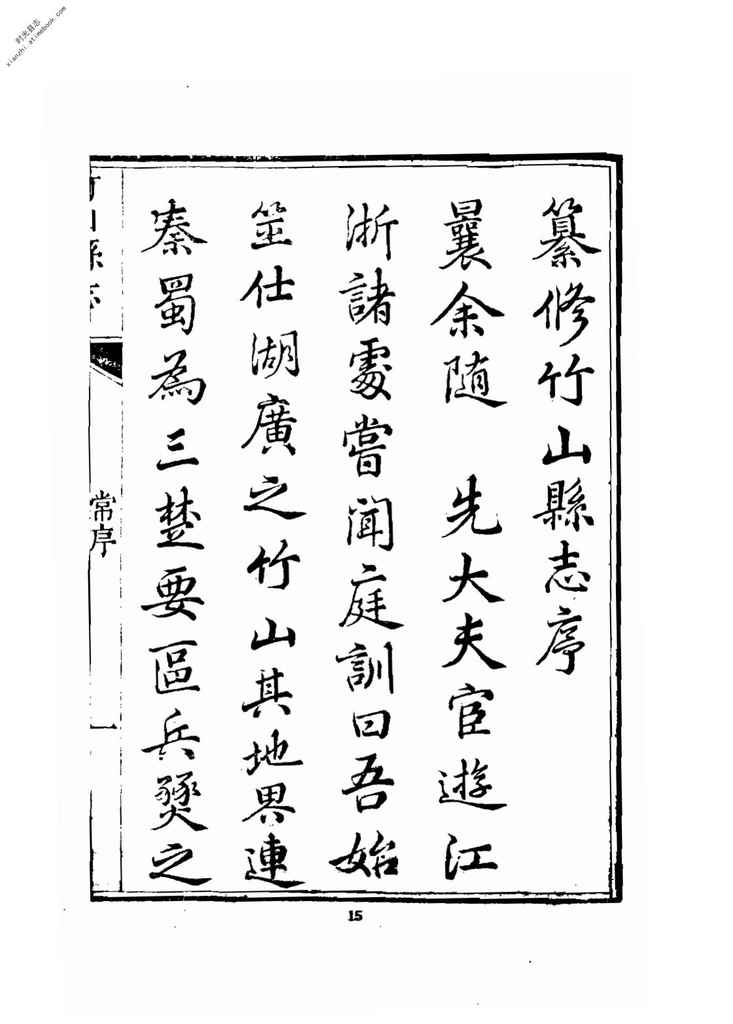 时光县志
xianzhi.atimebook.com
纂修竹山縣志序
曩余随　先大夫宦遊江
浙諸處嘗聞庭訓曰吾始
筮仕湖廣之竹山其地界連
秦蜀為三楚要區兵燹之
竹山縣志
常序
一
15